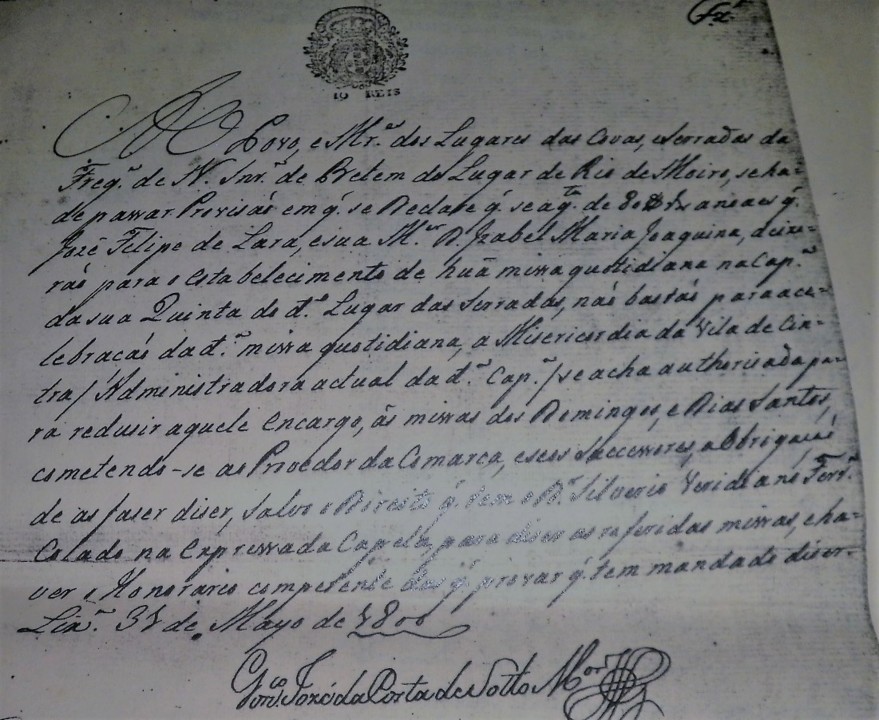 10 REIS
Ao Povo, e Mr.es dos Lugares das Covas, e Serradas da
Freg.a de N. Snr.a de Belem do Lugar de Rio de Moiro, se ha-
de passar Provisaõ em q. se Declare q. se a q.ta de 80 annaes q.
Jozé Felipe de Lara, e sua M.er D. Izabel Maria Joaquina, deixa-
raõ para o estabelecimento de huã missa quotidiana na Cap.a
da sua Quinta do d.o Lugar das Serradas, naõ bastaõ para a ce-
lebracaõ da d.a missa quotidiana, a Misericordia da Vila de Cin-
tra / Administradora actual da d.a Cap.a / se acha authorisada pa-
ra redusir aquele Encargo, ás missas dos Domingos, e Dias Santos,
cometendo-se ao Provedor da Comarca, e seos Successores, a Obrigaçaõ
de as faser diser, salvo o Direito q. tem o P.e Silverio Veridiano Ferr.a
Colado na Expressada Capela, para diser as referidas missas, e ha-
ver o Honorario competente das q. provar q. tem mandado diser-
Lix.a 31 de Mayo de 1800
Jozé da Costa de Sotto M.or